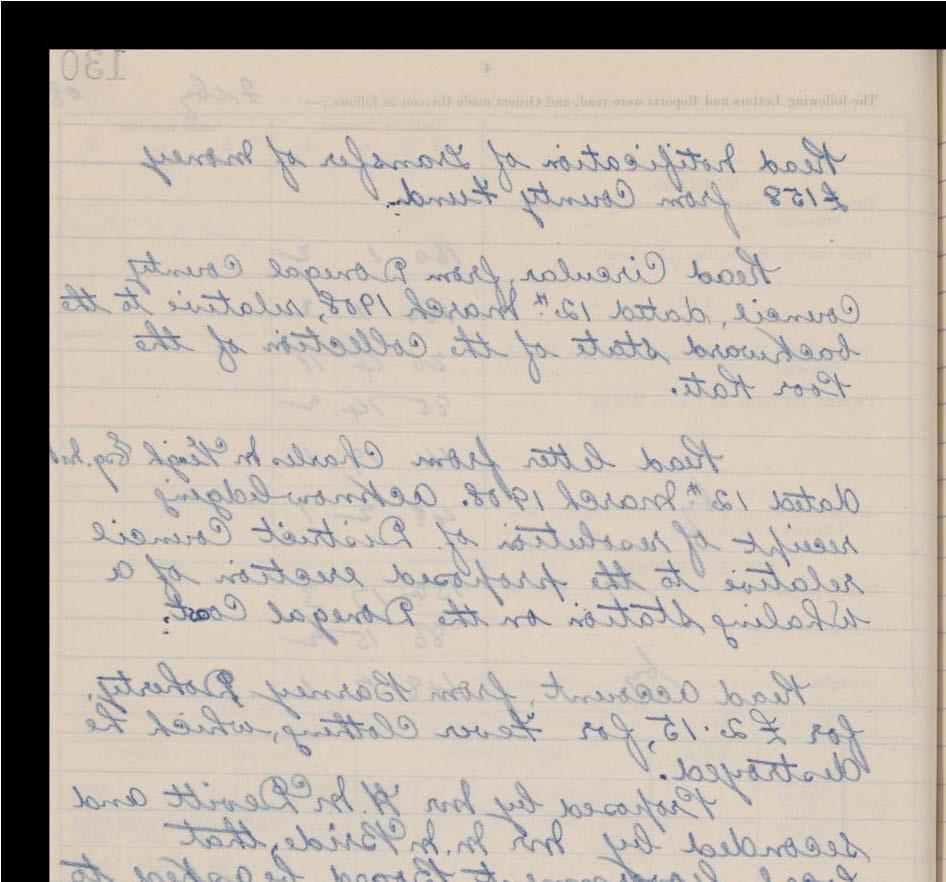 130
The following Letters and Reports were read, and Orders made thereon as follows :—
Read Notification of Transfer of Money
£158 from County Fund.
Read Circular, from Donegal County
Council, dated 12th March 1908, relative to the
backward state of the Collection of the
Poor Rate.
Read letter from Charles McVeigh Esq.
dated 12th March 1908. acknowledging
receipt of resolution of District Council
relative to the proposed erection of a
Whaling Station on the Donegal Coast.
Read account, from Barney Doherty,
for £2.15, for Fever Clothing, which he
destroyed.
Proposed by Mr H. McDevitt and
seconded by Mr M. McBride, that